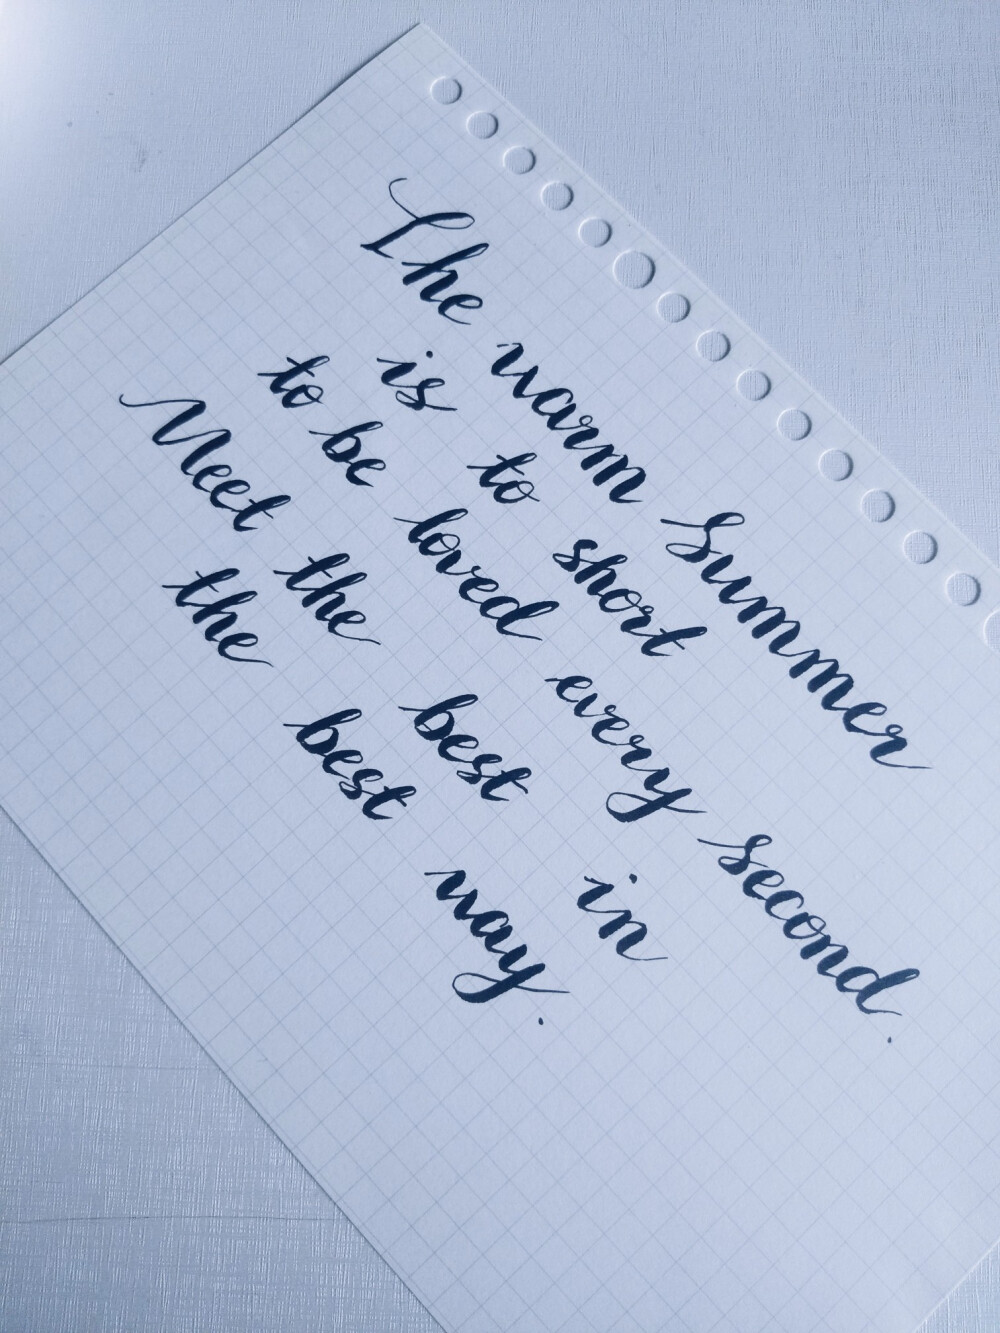 The warm Summer
is to short
to be loved every second.
Meet the best in
the best way.